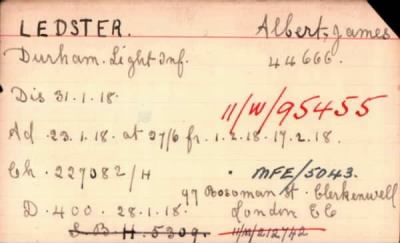 LEDSTER. Albert, James.
Durham. Light Inf. 44666.
Dis 31.1.18.
11/W/95455
Ad. 23.1.18. at 27/6 fr. 1.2.18. 17.2.18.
Ch. 227082/H
. MFE/5043.
97 St. Clerkenwell
D. 400. 28.1.18. London E.C
S.B.H. 5309. 11/M/212742